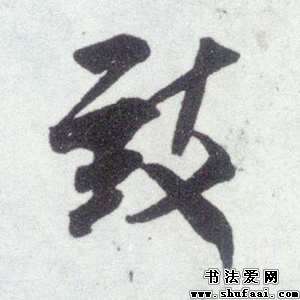 致
书法爱网
www.shufaai.com